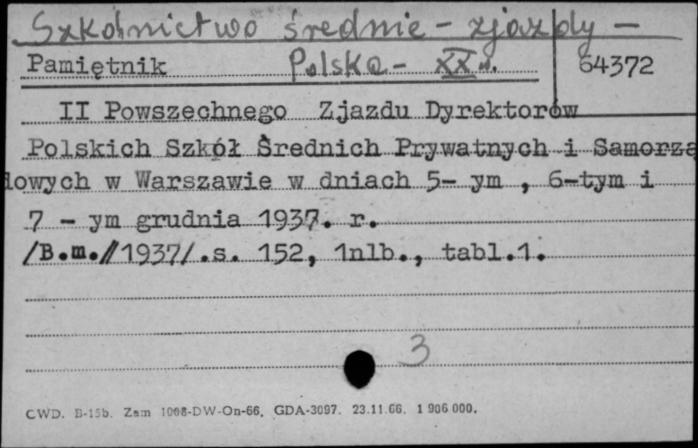 Szkolnictwo średnie - zjazdy -
Pamiętnik Polska - XX w. 64372
II Powszechnego Zjazdu Dyrektorów
Polskich Szkół Średnich Prywatnych i Samorzą
dowych w Warszawie w dniach 5- ym , 6-tym i
7 - ym grudnia 1937. r.
/B.m.//1937/.s. 152, 1nlb., tabl.1.
3
CWD. B-15b. Zam 1008-DW-On-66. GDA-3097. 23.11.66. 1 906 000.